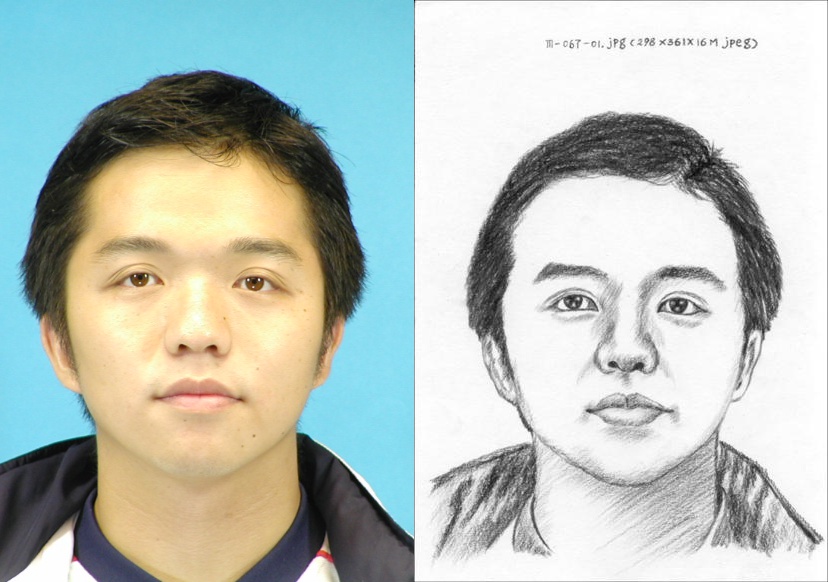 m-067-01.jpg (298x361x16M jpeg)